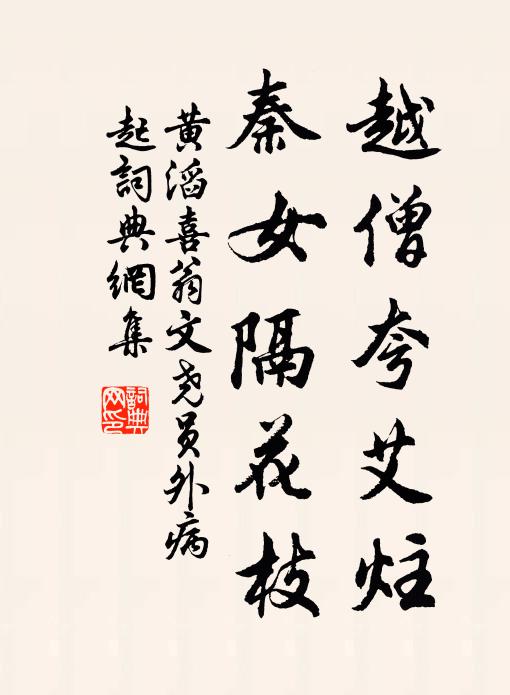 越僧夸艾炷
秦女隔花枝
黄滔喜翁文尧员外病
起詞典網集
詞典网印